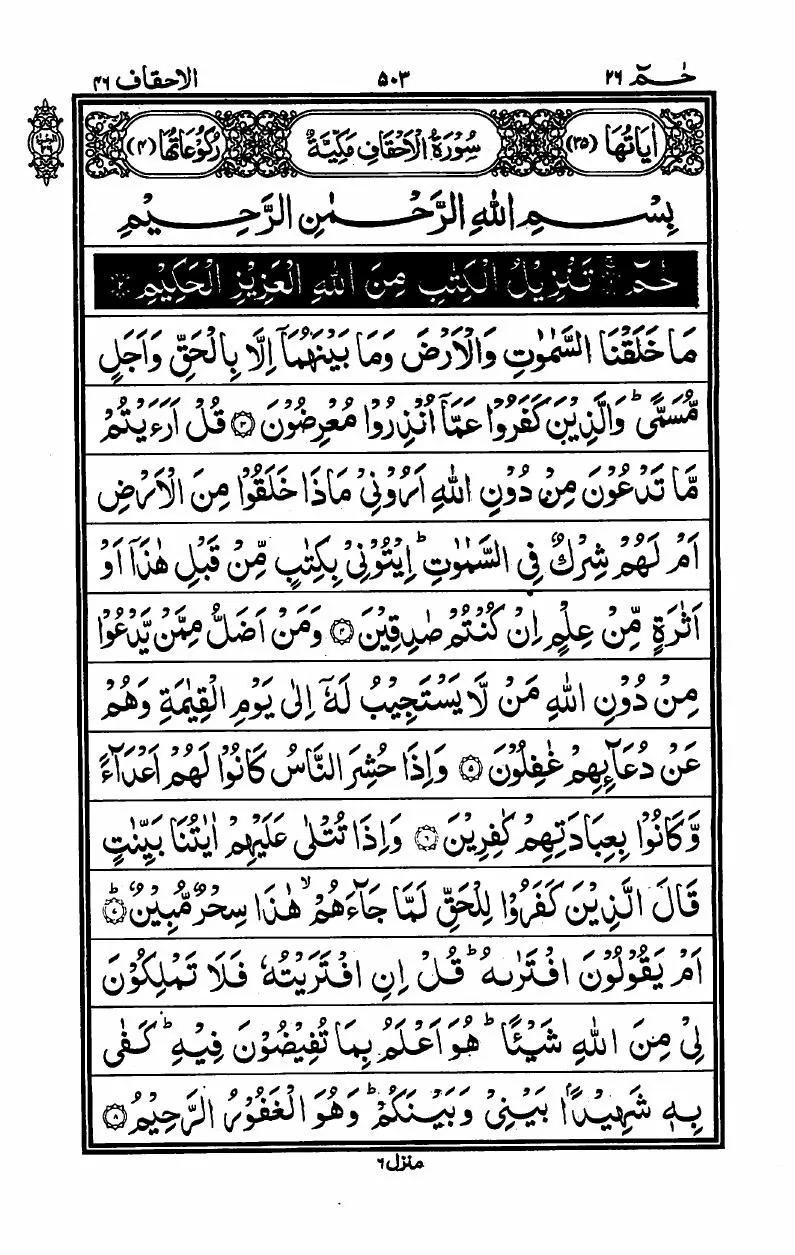 حٰمٓ ۲۶
۵۰۳
الاحقاف ۴۶
اٰیَاتُهَا (۳۵)
سُوْرَةُ الْاَحْقَافِ مَكِّیَّةٌ
رُكُوْعَاتُهَا (۴)
بِسْمِ اللّٰهِ الرَّحْمٰنِ الرَّحِیْمِ
حٰمٓ ۚ۝۱ تَنْزِیْلُ الْكِتٰبِ مِنَ اللّٰهِ الْعَزِیْزِ الْحَكِیْمِ ۝۲
مَا خَلَقْنَا السَّمٰوٰتِ وَالْاَرْضَ وَمَا بَیْنَهُمَاۤ اِلَّا بِالْحَقِّ وَاَجَلٍ
مُّسَمًّی ؕ وَالَّذِیْنَ كَفَرُوْا عَمَّاۤ اُنْذِرُوْا مُعْرِضُوْنَ ۝۳ قُلْ اَرَءَیْتُمْ
مَّا تَدْعُوْنَ مِنْ دُوْنِ اللّٰهِ اَرُوْنِیْ مَاذَا خَلَقُوْا مِنَ الْاَرْضِ
اَمْ لَهُمْ شِرْكٌ فِی السَّمٰوٰتِ ؕ اِیْتُوْنِیْ بِكِتٰبٍ مِّنْ قَبْلِ هٰذَاۤ اَوْ
اَثٰرَةٍ مِّنْ عِلْمٍ اِنْ كُنْتُمْ صٰدِقِیْنَ ۝۴ وَمَنْ اَضَلُّ مِمَّنْ یَّدْعُوْا
مِنْ دُوْنِ اللّٰهِ مَنْ لَّا یَسْتَجِیْبُ لَهٗۤ اِلٰی یَوْمِ الْقِیٰمَةِ وَهُمْ
عَنْ دُعَآىِٕهِمْ غٰفِلُوْنَ ۝۵ وَاِذَا حُشِرَ النَّاسُ كَانُوْا لَهُمْ اَعْدَآءً
وَّكَانُوْا بِعِبَادَتِهِمْ كٰفِرِیْنَ ۝۶ وَاِذَا تُتْلٰی عَلَیْهِمْ اٰیٰتُنَا بَیِّنٰتٍ
قَالَ الَّذِیْنَ كَفَرُوْا لِلْحَقِّ لَمَّا جَآءَهُمْ ۙ هٰذَا سِحْرٌ مُّبِیْنٌ ؕ۝۷
اَمْ یَقُوْلُوْنَ افْتَرٰىهُ ؕ قُلْ اِنِ افْتَرَیْتُهٗ فَلَا تَمْلِكُوْنَ
لِیْ مِنَ اللّٰهِ شَیْـًٔا ؕ هُوَ اَعْلَمُ بِمَا تُفِیْضُوْنَ فِیْهِ ؕ كَفٰی
بِهٖ شَهِیْدًۢا بَیْنِیْ وَبَیْنَكُمْ ؕ وَهُوَ الْغَفُوْرُ الرَّحِیْمُ ۝۸
منزل ۶